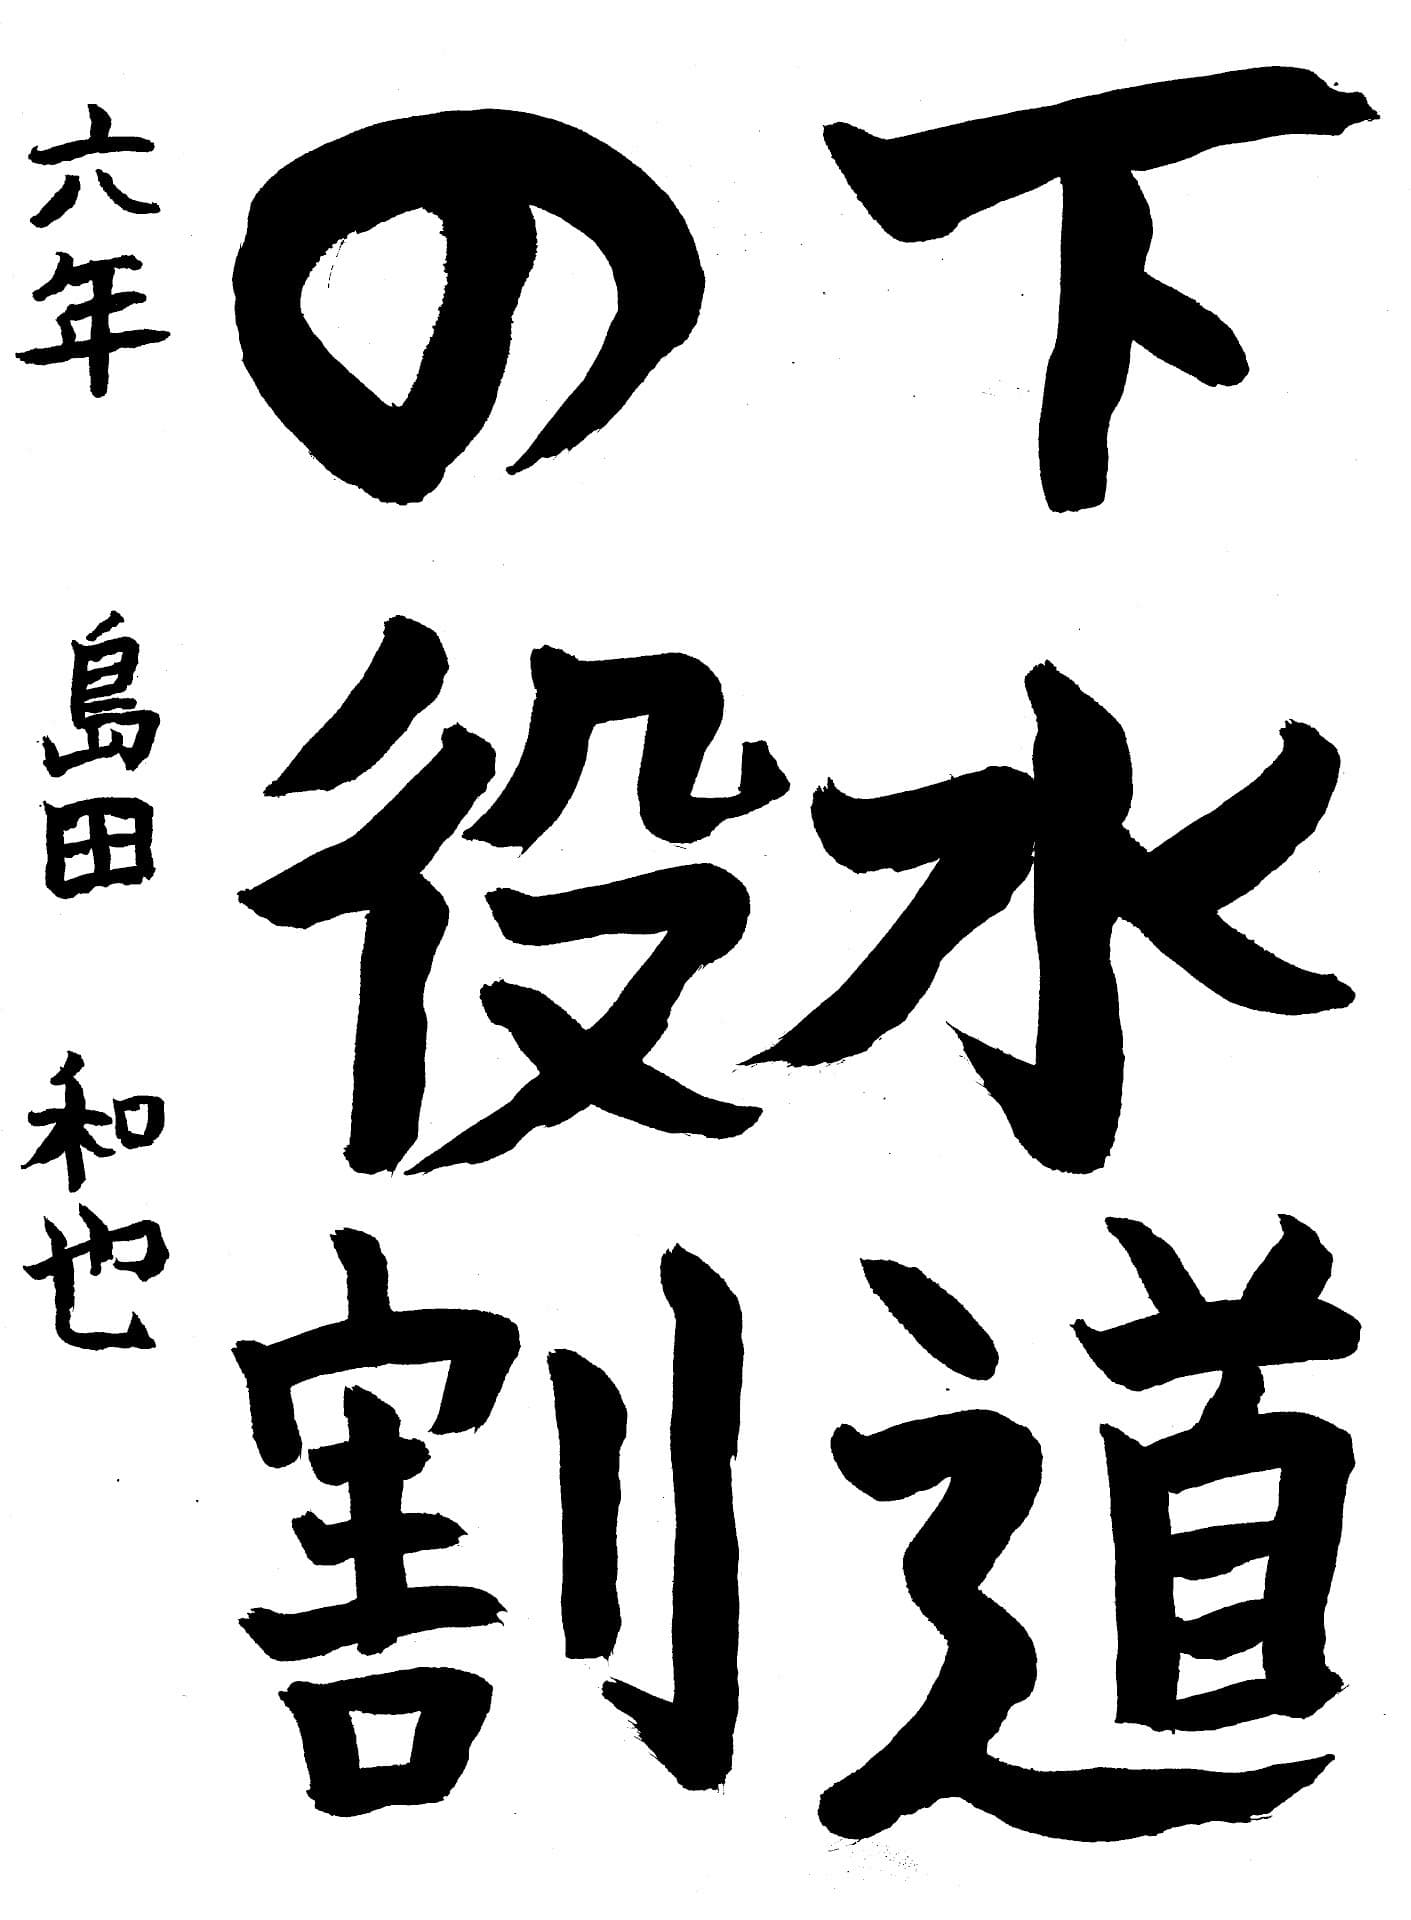 下水道
の役割
六年 島田 和也